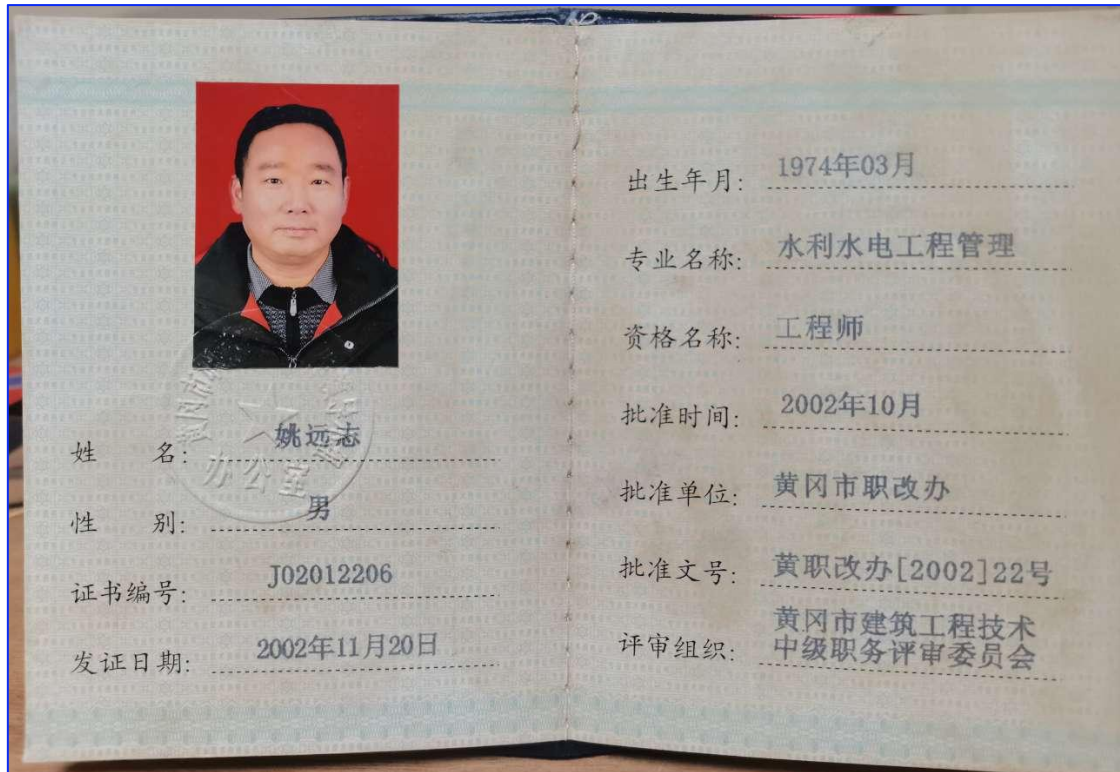 姓名: 姚远志
性别: 男
证书编号: J02012206
发证日期: 2002年11月20日
办公室
出生年月: 1974年03月
专业名称: 水利水电工程管理
资格名称: 工程师
批准时间: 2002年10月
批准单位: 黄冈市职改办
批准文号: 黄职改办[2002]22号
评审组织: 黄冈市建筑工程技术
中级职务评审委员会